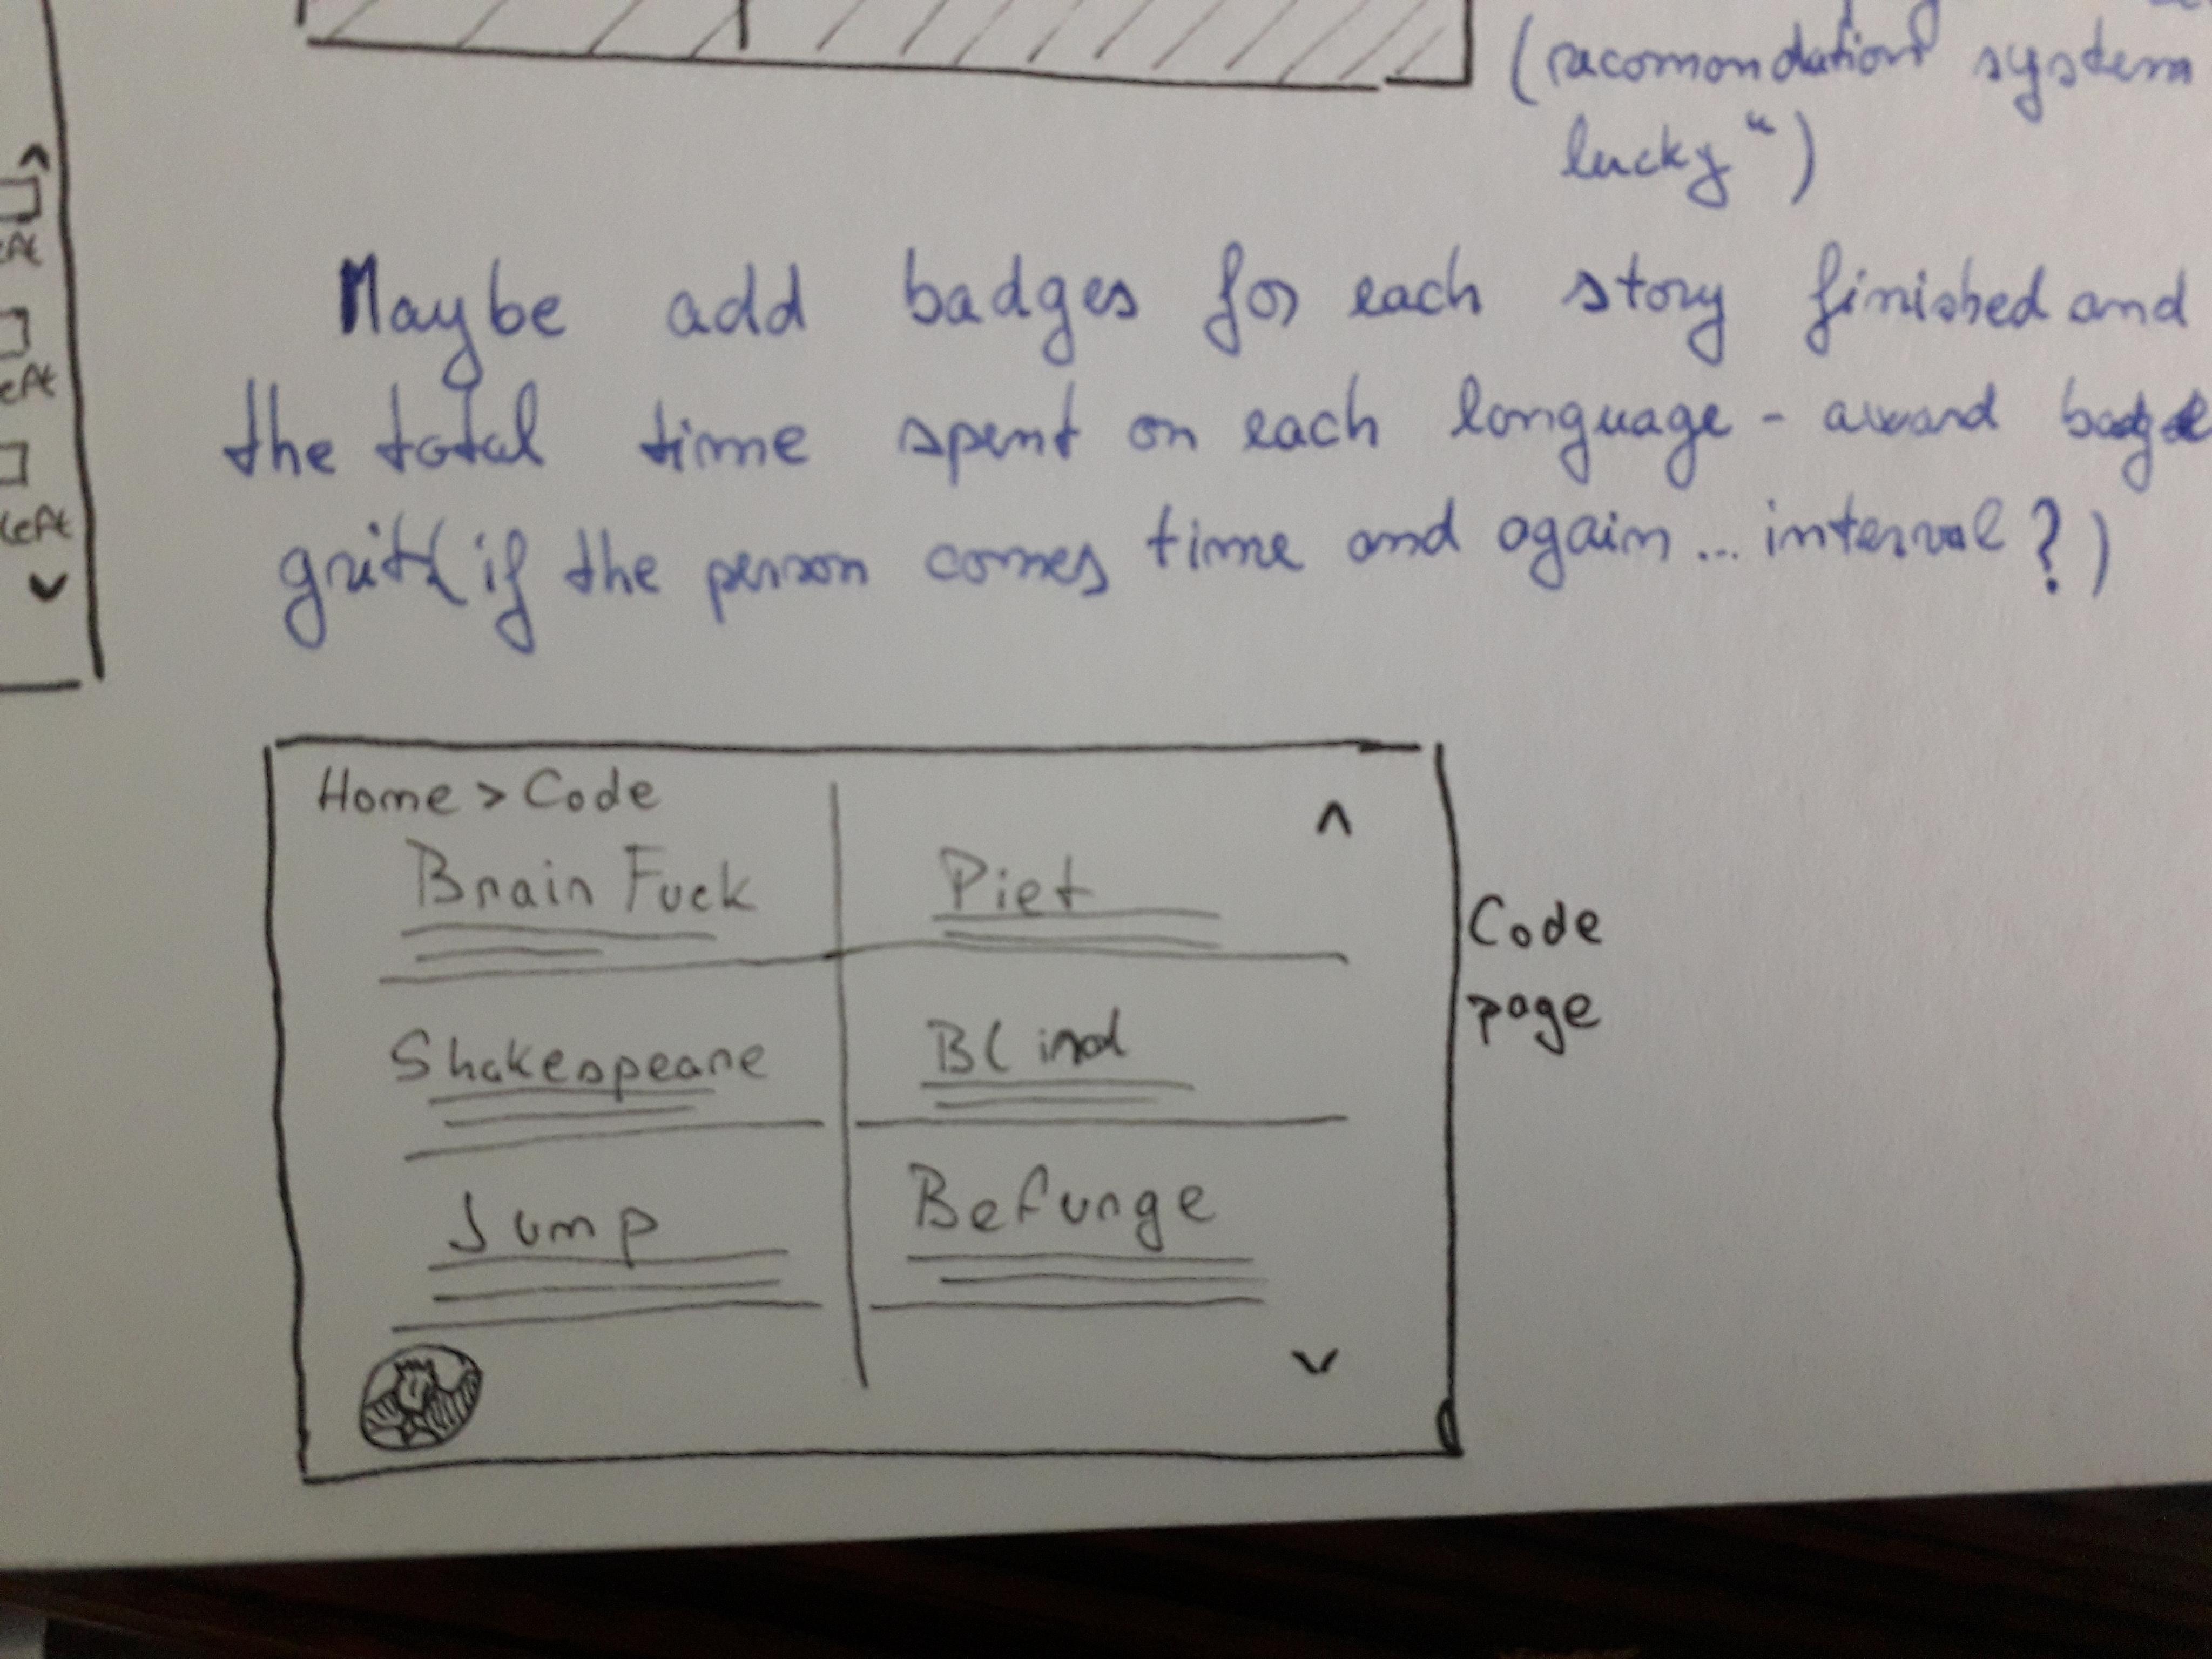 (racomondation system
lucky“)
Maybe add badges for each story finished and
the total time spent on each language - award badge
grit (if the person comes time and again... interval?)
left
left
left
Home > Code
Brain Fuck
Piet
Shakespeare
Blind
Jump
Befunge
Code
page